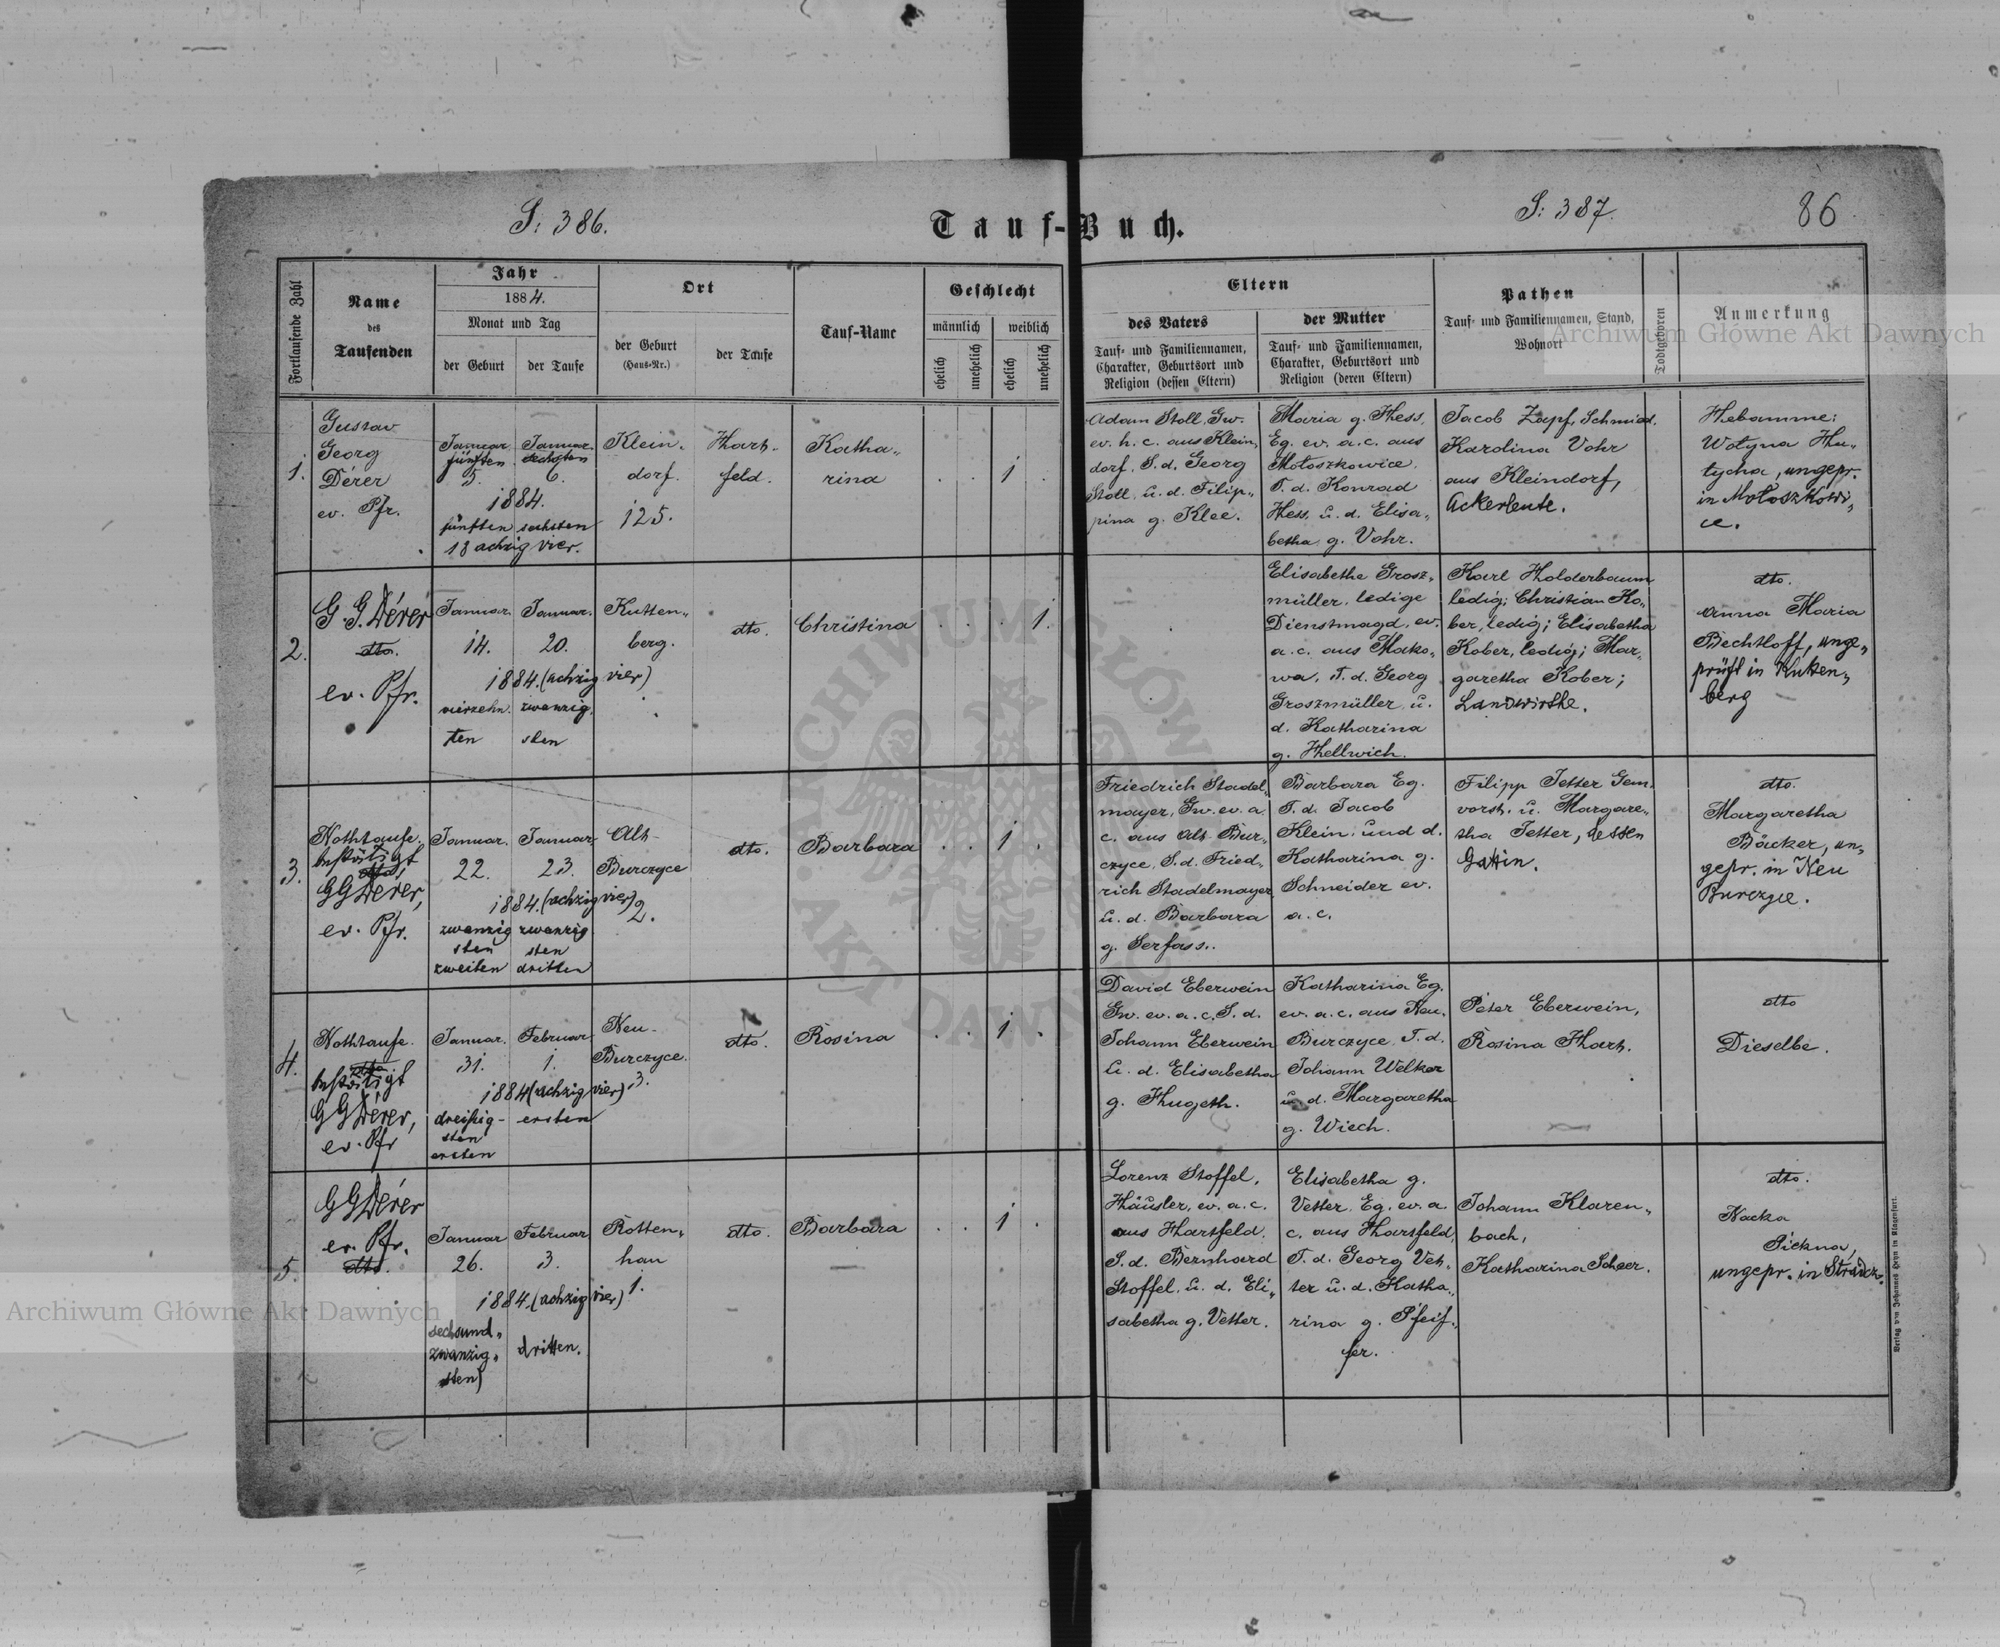 S: 386.
Tauf-Buch.
S: 387.
86
Fortlaufende Zahl
Name
des
Taufenden
Jahr
1884.
Monat und Tag
der Geburt
der Taufe
Ort
der Geburt
(Haus-Nr.)
der Taufe
Tauf-Name
Geschlecht
männlich
weiblich
ehelich
unehelich
ehelich
unehelich
Eltern
des Vaters
Tauf- und Familiennamen,
Charakter, Geburtsort und
Religion (dessen Eltern)
der Mutter
Tauf- und Familiennamen,
Charakter, Geburtsort und
Religion (deren Eltern)
Pathen
Tauf- und Familiennamen, Stand,
Wohnort
Todtgeboren
Anmerkung
Archiwum Główne Akt Dawnych
1.
Gustav
Georg
Dérer
ev. Pfr.
Januar.
fünften
5.
Januar.
sechsten
6.
1884.
fünften sechsten
18 achzig vier.
Klein-
dorf.
125.
Hart-
feld.
Katha-
rina
1
Adam Stoll, Gw.
ev. h. c. aus Klein,
dorf, S. d. Georg
Stoll, u. d. Filip„
pina g. Klee.
Maria g. Hess,
Eg. ev. a. c. aus
Mołoszkowice,
T. d. Konrad
Hess, u. d. Elisa„
betha g. Vohr.
Jacob Zapf, Schmied.
Karolina Vohr
aus Kleindorf,
Ackerleute.
Hebamme:
Wołyna Hu„
tycha, ungepr.
in Mołoszkowi„
ce.
2.
G. G. Dérer
dto.
ev. Pfr.
Januar.
14.
Januar.
20.
1884. (achzig vier)
vierzehn. zwanzig.
ten sten
Kutten„
berg.
dto.
Christina
1.
Elisabetha Grosz„
müller, ledige
Dienstmagd, ev.
a. c. aus Mako„
wa, T. d. Georg
Groszmüller, u.
d. Katharina
g. Hellwich.
Karl Holderbaum
ledig; Christian Ko„
ber, ledig; Elisabetha
Kober, ledig; Mar„
garetha Kober;
Landwirthe.
dto.
Anna Maria
Bechtloff, unge„
prüft in Kuken„
berg
3.
Nothtaufe.
bestätigt
dto,
GG Dérer,
ev. Pfr.
Januar.
22.
Januar
23.
1884. (achzig vier)
zwanzig zwanzig
sten sten
zweiten dritten
Alt-
Burczyce
2.
dto.
Barbara
1
Friedrich Stadel„
mayer, Gw. ev. a.
c. aus Alt Bur„
czyce, S. d. Fried„
rich Stadelmayer
u. d. Barbara
g. Serfass.
Barbara Eg.
T. d. Jacob
Klein, und d.
Katharina g.
Schneider ev.
a. c.
Filipp Jetter Gem.
vorst. u. Margare„
tha Jetter, dessen
Gattin.
dto.
Margaretha
Bäcker, un„
gepr. in Neu
Burczyce.
4.
Nothtaufe.
dto
bestätigt
GG Dérer,
ev. Pfr
Januar.
31.
Februar
1.
1884 (achzig vier)
dreißig- ersten
sten
ersten
Neu-
Burczyce.
3.
dto.
Rosina
1
David Eberwein
Gw. ev. a. c, S. d.
Johann Eberwein
u. d. Elisabetha
g. Hugeth.
Katharina Eg.
ev. a. c. aus Neu.
Burczyce. T. d.
Johann Welker
u. d. Margaretha
g. Wiech.
Peter Eberwein,
Rosina Harth.
dto
Dieselbe.
5.
GG Dérer
ev. Pfr.
dto.
Januar
26.
Februar
3.
1884. (achzig vier)
sechsund„
zwanzig„
sten)
dritten.
Rotten„
han
1.
dto.
Barbara
1
Lorenz Stoffel,
Häusler, ev. a. c.
aus Hartfeld.
S. d. Bernhard
Stoffel, u. d. Eli„
sabetha g. Vetter.
Elisabetha g.
Vetter. Eg. ev. a
c. aus Hartfeld,
T. d. Georg Vet„
ter u. d. Katha„
rina g. Pfeif„
fer.
Johann Klaren„
bach,
Katharina Scheer.
dto.
Nacka
Pickna,
ungepr. in Stradcz.
Archiwum Główne Akt Dawnych
Verlag von Johannes Heyn in Klagenfurt.
ARCHIWUM GŁÓWNE AKT DAWNYCH